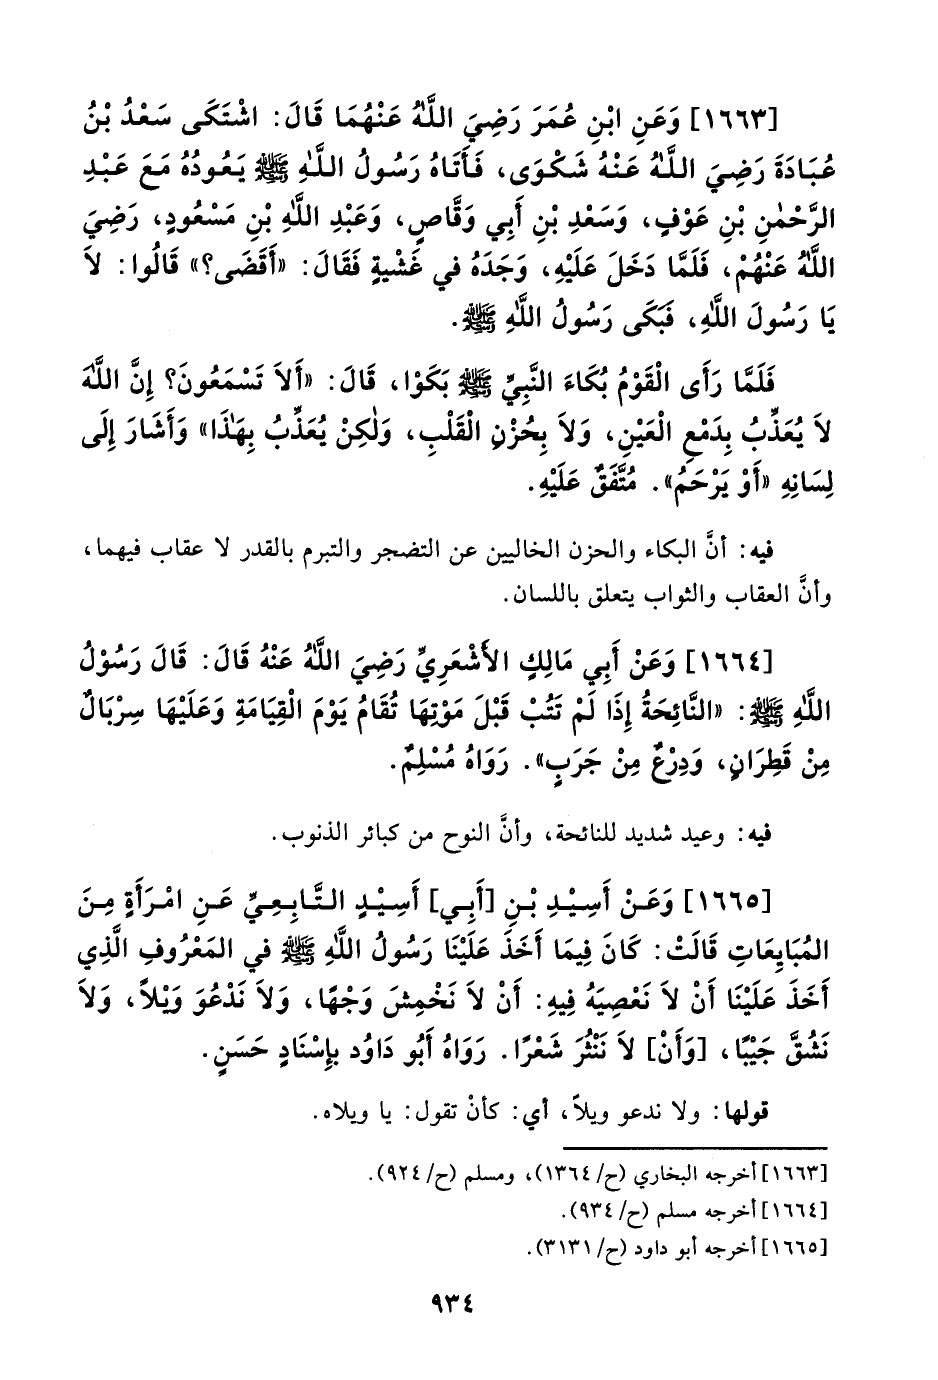 [١٦٦٣] وَعَنِ ابْنِ عُمَرَ رَضِيَ اللَّهُ عَنْهُمَا قَالَ: اشْتَكَى سَعْدُ بْنُ
عُبَادَةَ رَضِيَ اللَّهُ عَنْهُ شَكْوَى، فَأَتَاهُ رَسُولُ اللَّهِ ﷺ يَعُودُهُ مَعَ عَبْدِ
الرَّحْمٰنِ بْنِ عَوْفٍ، وَسَعْدِ بْنِ أَبِي وَقَّاصٍ، وَعَبْدِ اللَّهِ بْنِ مَسْعُودٍ، رَضِيَ
اللَّهُ عَنْهُمْ، فَلَمَّا دَخَلَ عَلَيْهِ، وَجَدَهُ فِي غَشْيَةٍ فَقَالَ: «أَقَضَى؟» قَالُوا: لاَ
يَا رَسُولَ اللَّهِ، فَبَكَى رَسُولُ اللَّهِ ﷺ.
فَلَمَّا رَأَى الْقَوْمُ بُكَاءَ النَّبِيِّ ﷺ بَكَوْا، قَالَ: «أَلاَ تَسْمَعُونَ؟ إِنَّ اللَّهَ
لاَ يُعَذِّبُ بِدَمْعِ الْعَيْنِ، وَلاَ بِحُزْنِ الْقَلْبِ، وَلٰكِنْ يُعَذِّبُ بِهٰذَا» وَأَشَارَ إِلَى
لِسَانِهِ «أَوْ يَرْحَمُ». مُتَّفَقٌ عَلَيْهِ.
فيه: أنَّ البكاء والحزن الخاليين عن التضجر والتبرم بالقدر لا عقاب فيهما،
وأنَّ العقاب والثواب يتعلق باللسان.
[١٦٦٤] وَعَنْ أَبِي مَالِكٍ الأَشْعَرِيِّ رَضِيَ اللَّهُ عَنْهُ قَالَ: قَالَ رَسُوْلُ
اللَّهِ ﷺ: «النَّائِحَةُ إِذَا لَمْ تَتُبْ قَبْلَ مَوْتِهَا تُقَامُ يَوْمَ الْقِيَامَةِ وَعَلَيْهَا سِرْبَالٌ
مِنْ قَطِرَانٍ، وَدِرْعٌ مِنْ جَرَبٍ». رَوَاهُ مُسْلِمٌ.
فيه: وعيد شديد للنائحة، وأنَّ النوح من كبائر الذنوب.
[١٦٦٥] وَعَنْ أَسِيْدِ بْنِ [أَبِي] أَسِيْدٍ التَّابِعِيِّ عَنِ امْرَأَةٍ مِنَ
المُبَايِعَاتِ قَالَتْ: كَانَ فِيمَا أَخَذَ عَلَيْنَا رَسُولُ اللَّهِ ﷺ في المَعْرُوفِ الَّذِي
أَخَذَ عَلَيْنَا أَنْ لاَ نَعْصِيَهُ فِيهِ: أَنْ لاَ نَخْمِشَ وَجْهًا، وَلاَ نَدْعُوَ وَيْلاً، وَلاَ
نَشُقَّ جَيْبًا، [وَأَنْ] لاَ نَنْثُرَ شَعْرًا. رَوَاهُ أَبُو دَاوُد بِإِسْنَادٍ حَسَنٍ.
قولها: ولا ندعو ويلاً، أي: كأنْ تقول: يا ويلاه.
[١٦٦٣] أخرجه البخاري (ح/١٣٦٤)، ومسلم (ح/٩٢٤).
[١٦٦٤] أخرجه مسلم (ح/٩٣٤).
[١٦٦٥] أخرجه أبو داود (ح/٣١٣١).
٩٣٤